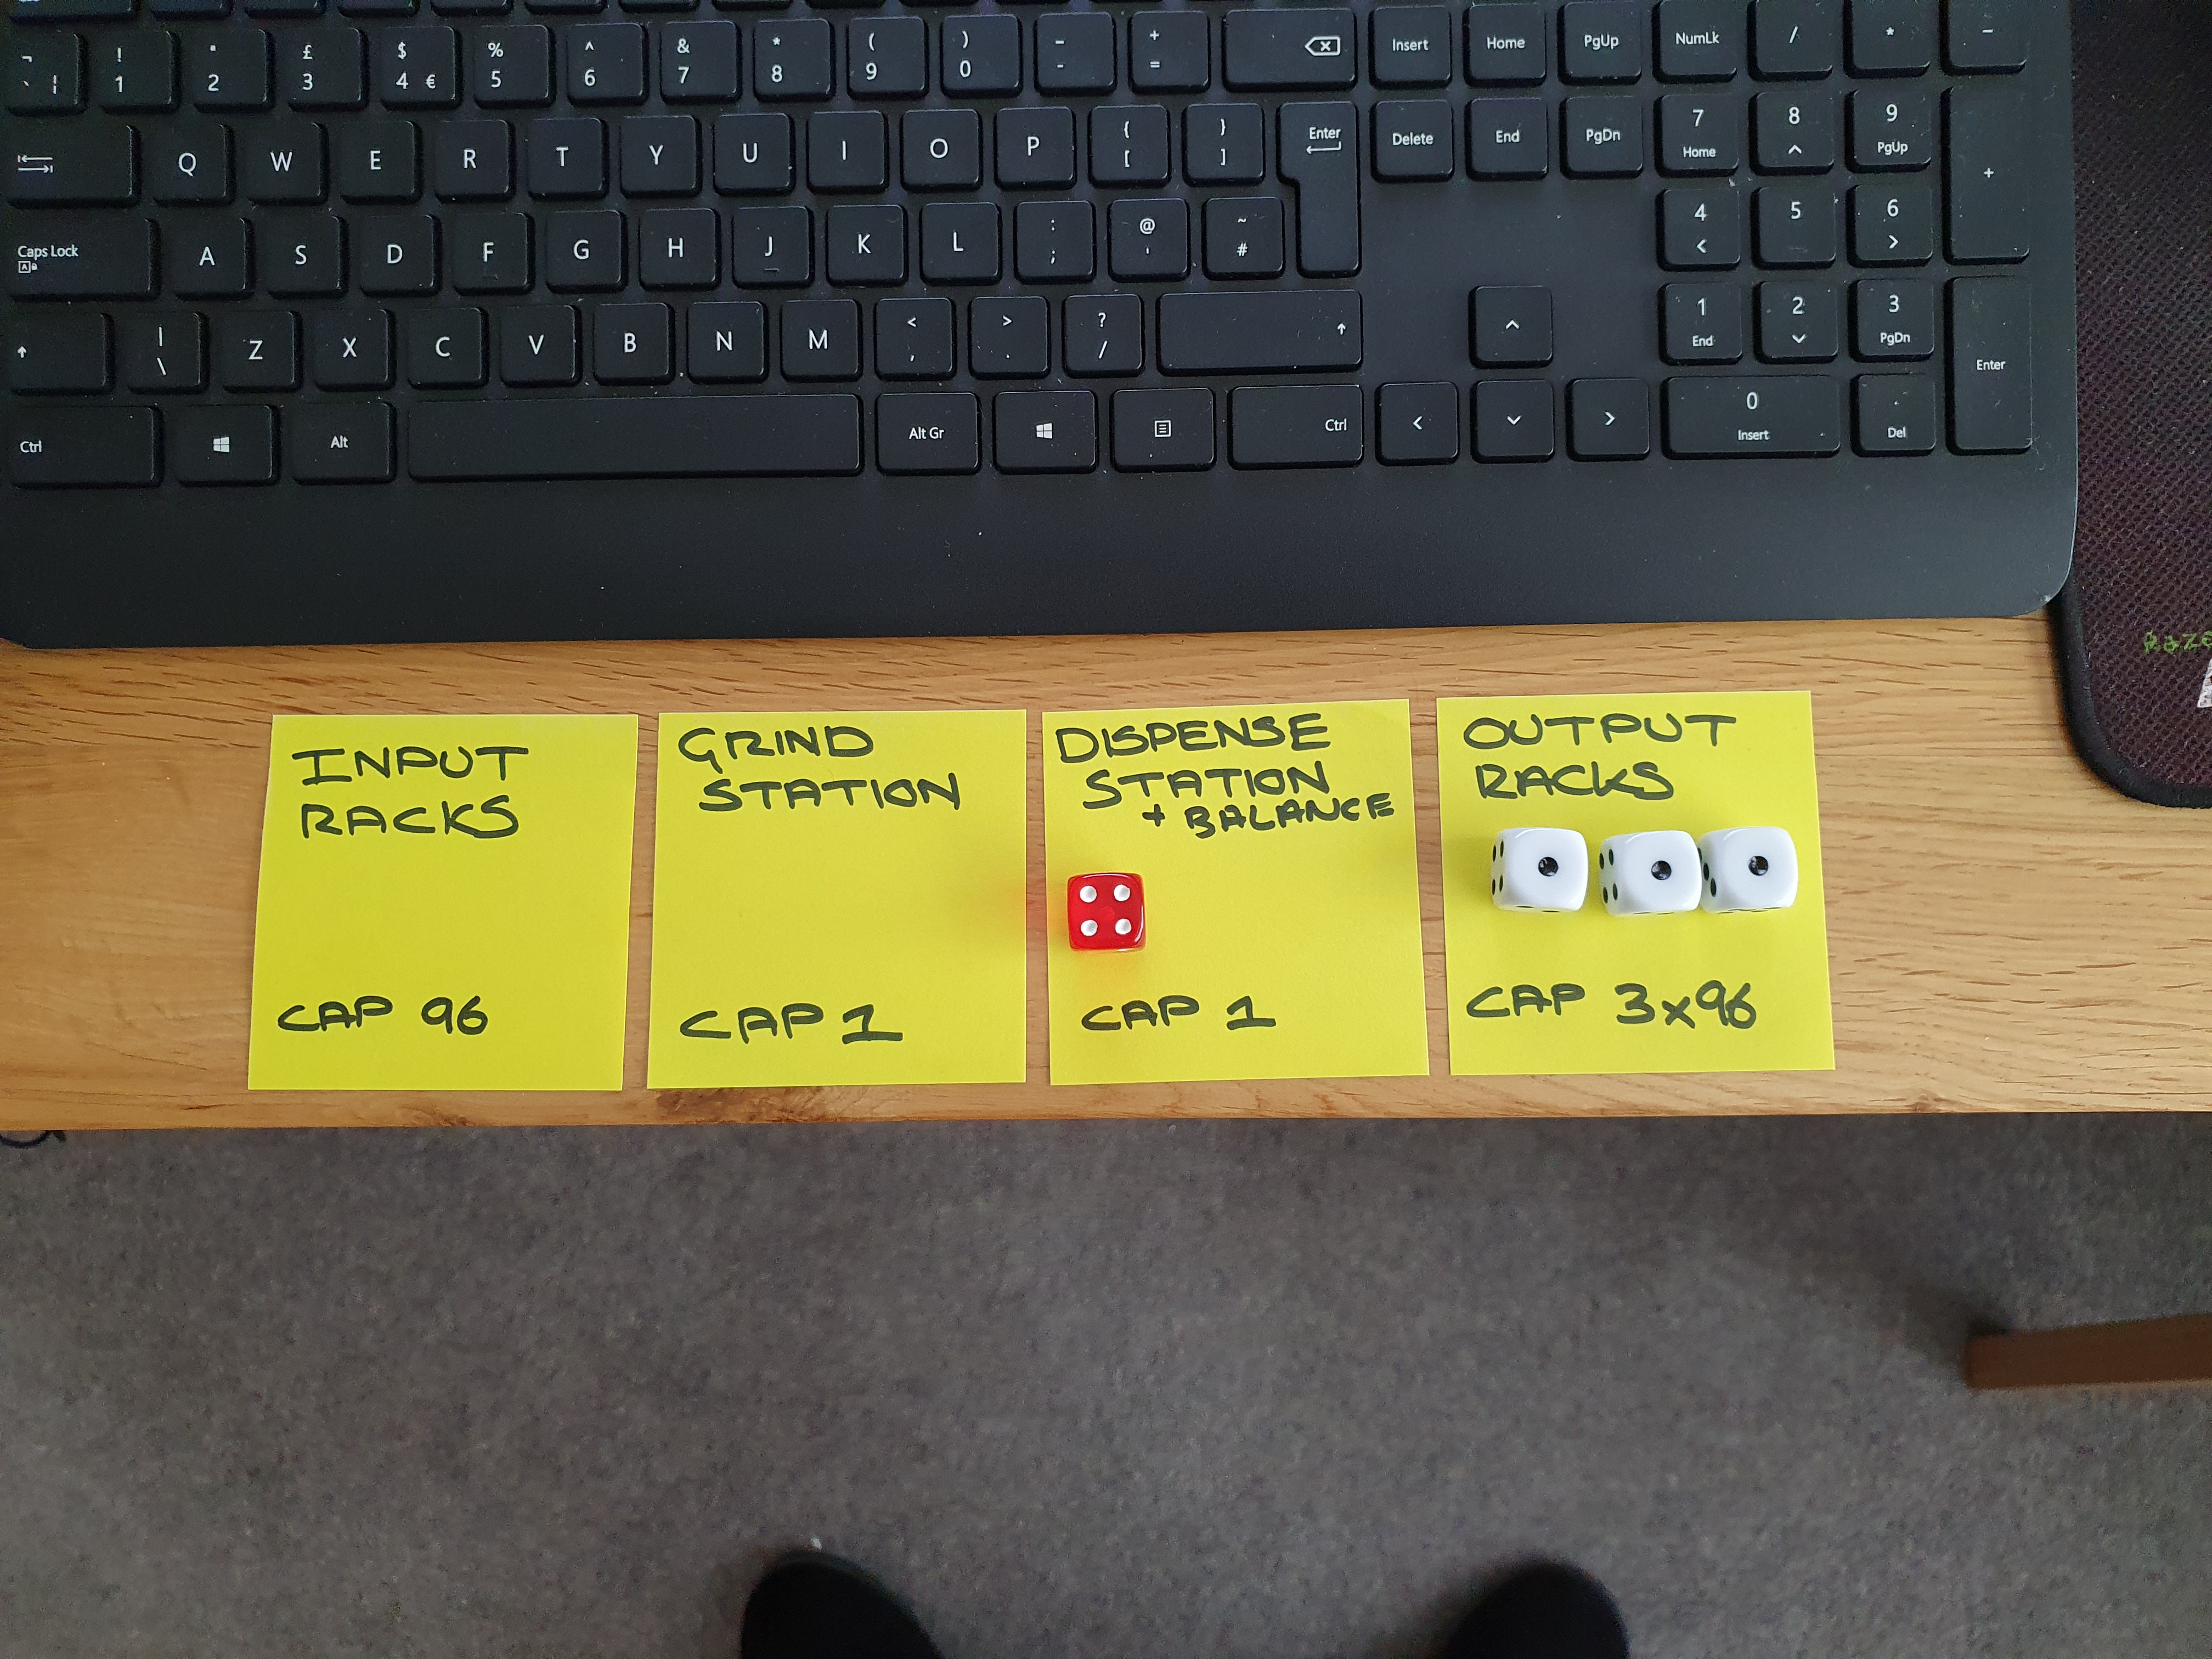 ¬ ! " £ $ % ^ & * ( ) _ +
` ¦ 1 2 3 4 € 5 6 7 8 9 0 - = Insert Home PgUp NumLk / * -
Q W E R T Y U I O P { [ } ] Enter Delete End PgDn 7 Home 8 9 PgUp +
Caps Lock A S D F G H J K L : ; @ ' ~ # 4 5 6
| \ Z X C V B N M < , > . ? / 1 End 2 3 PgDn Enter
Ctrl Alt Alt Gr Ctrl 0 Insert . Del
INPUT
RACKS
CAP 96
GRIND
STATION
CAP 1
DISPENSE
STATION
+ BALANCE
CAP 1
OUTPUT
RACKS
CAP 3x96